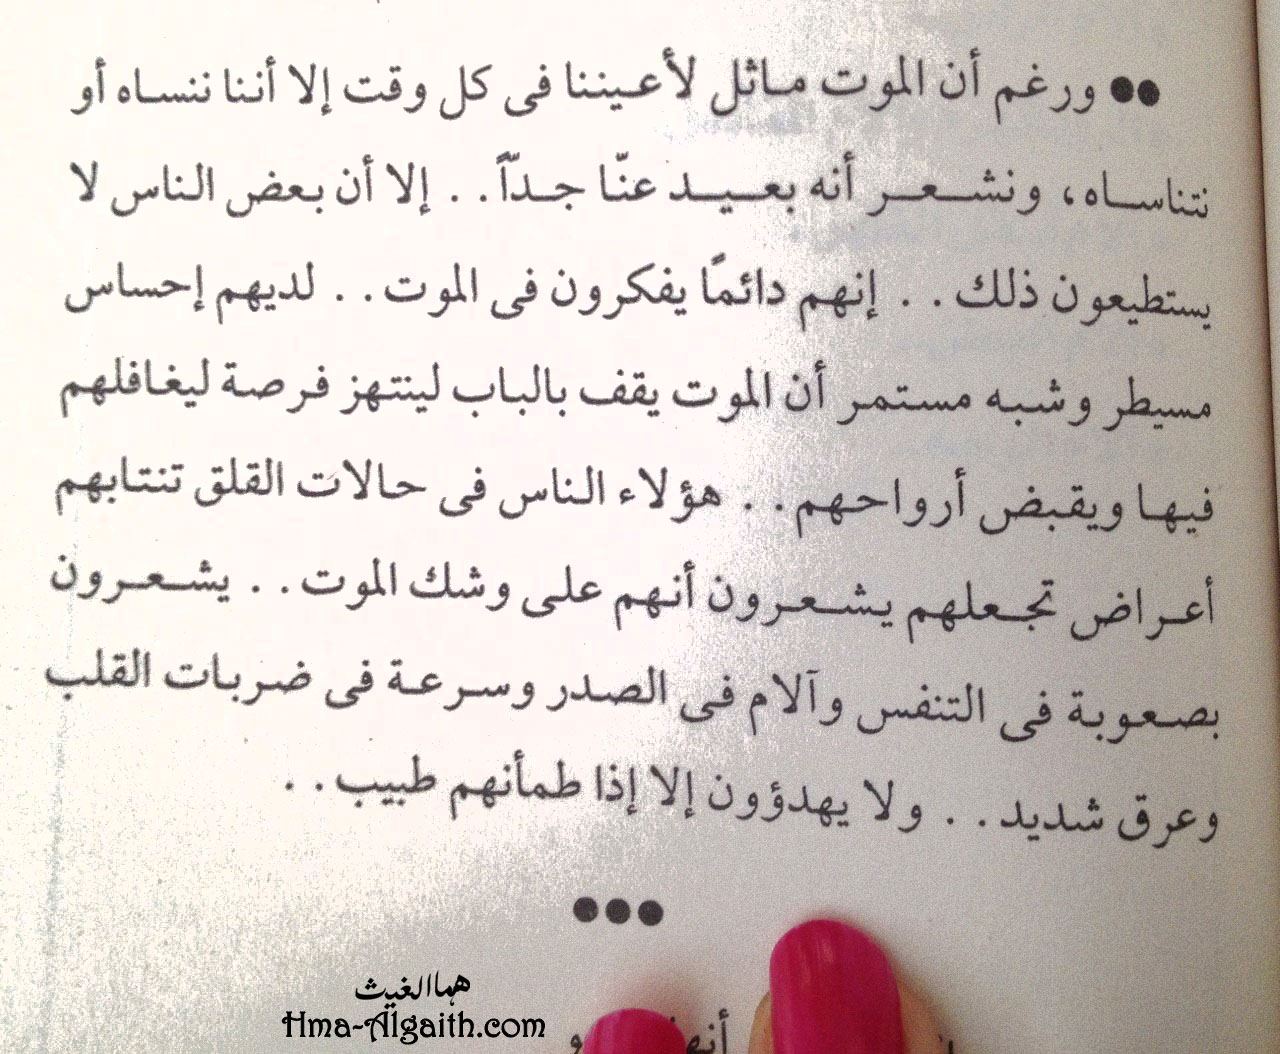 ●● ورغم أن الموت ماثل لأعيننا فى كل وقت إلا أننا ننساه أو
نتناساه، ونشعر أنه بعيد عنّا جدّاً . . إلا أن بعض الناس لا
يستطيعون ذلك . . إنهم دائمًا يفكرون فى الموت . . لديهم إحساس
مسيطر وشبه مستمر أن الموت يقف بالباب لينتهز فرصة ليغافلهم
فيها ويقبض أرواحهم . . هؤلاء الناس فى حالات القلق تنتابهم
أعراض تجعلهم يشعرون أنهم على وشك الموت . . يشعرون
بصعوبة فى التنفس وآلام فى الصدر وسرعة فى ضربات القلب
وعرق شديد . . ولا يهدؤون إلا إذا طمأنهم طبيب . .
●●●
هما الغيث
Hma-Algaith.com